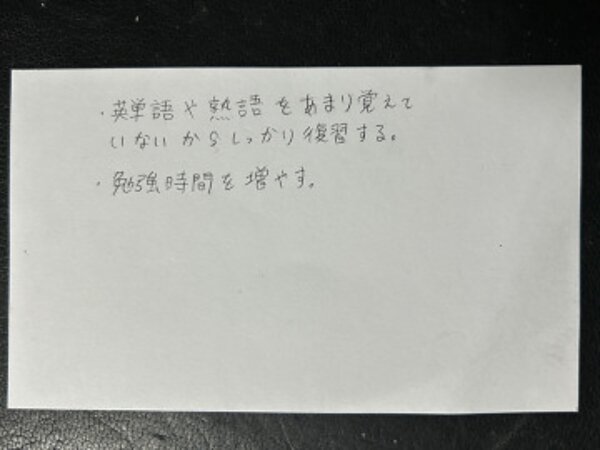 ・英単語や熟語をあまり覚えて
いないからしっかり復習する。
・勉強時間を増やす。